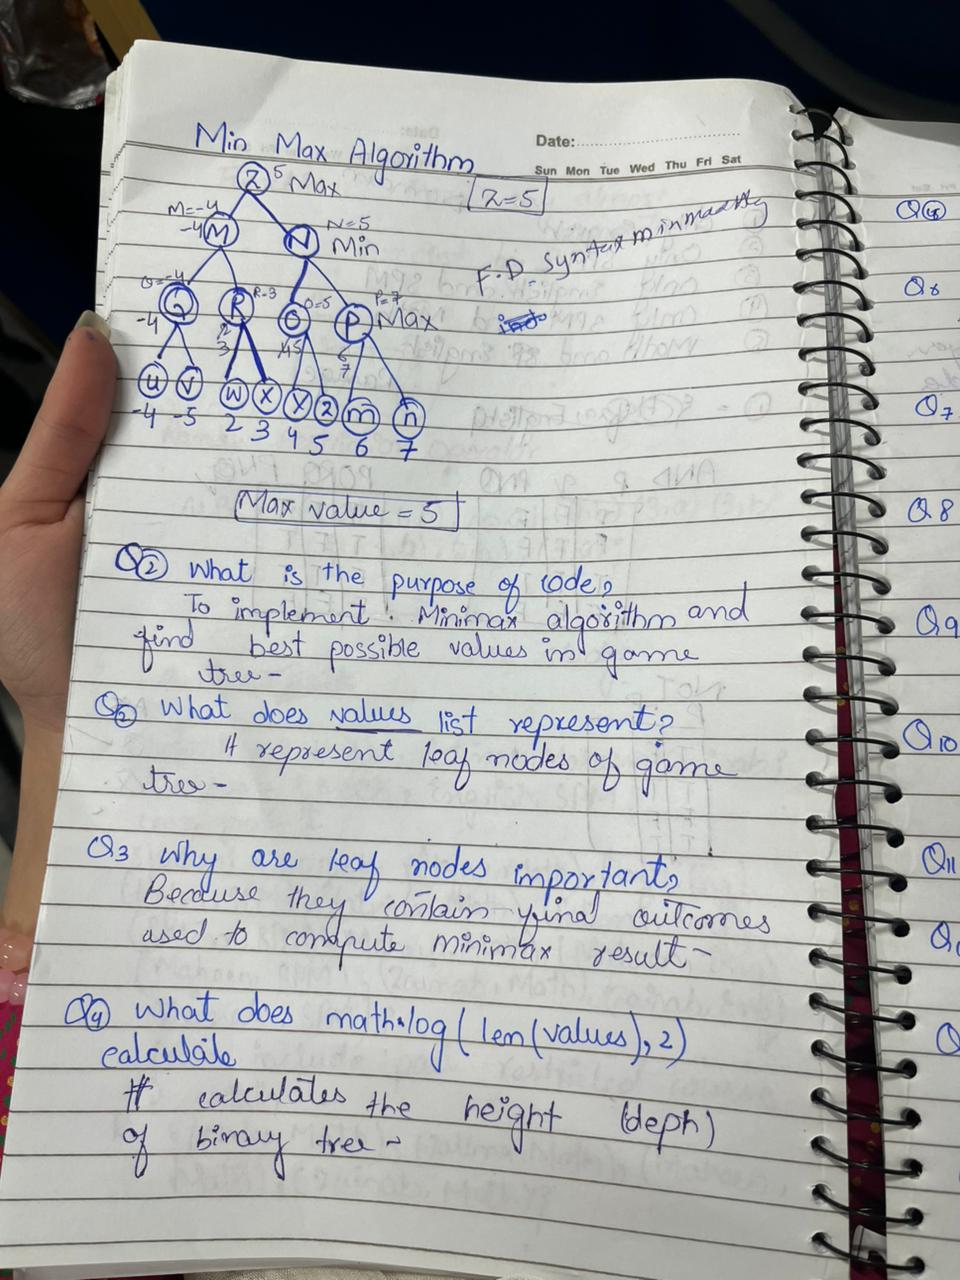 Min Max Algorithm
Date:
Sun Mon Tue Wed Thu Fri Sat
Z 5 Max
Z=5
M=-4
-4 M
N=5
N Min
F.D. Syntax
Q=-4
Q R R=3 O O=5 P P=7 Max
-4 2 4 5 6
3 7
u v w x y z m n
-4 -5 2 3 4 5 6 7
Max value = 5
Q2 What is the purpose of code?
To implement Minimax algorithm and
find best possible values in game
tree-
Q2 What does values list represent?
It represent leaf nodes of game
tree-
Q3 Why are leaf nodes important?
Because they contain final outcomes
used to compute minimax result-
Q4 What does math.log(len(values),2)
calculate
It calculates the height (deph)
of binary tree-
Q6
Q7
Q8
Q9
Q10
Q11